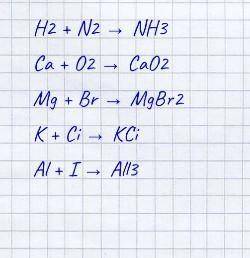 H2 + N2 → NH3
Ca + O2 → CaO2
Mg + Br → MgBr2
K + Ci → KCi
Al + I → All3